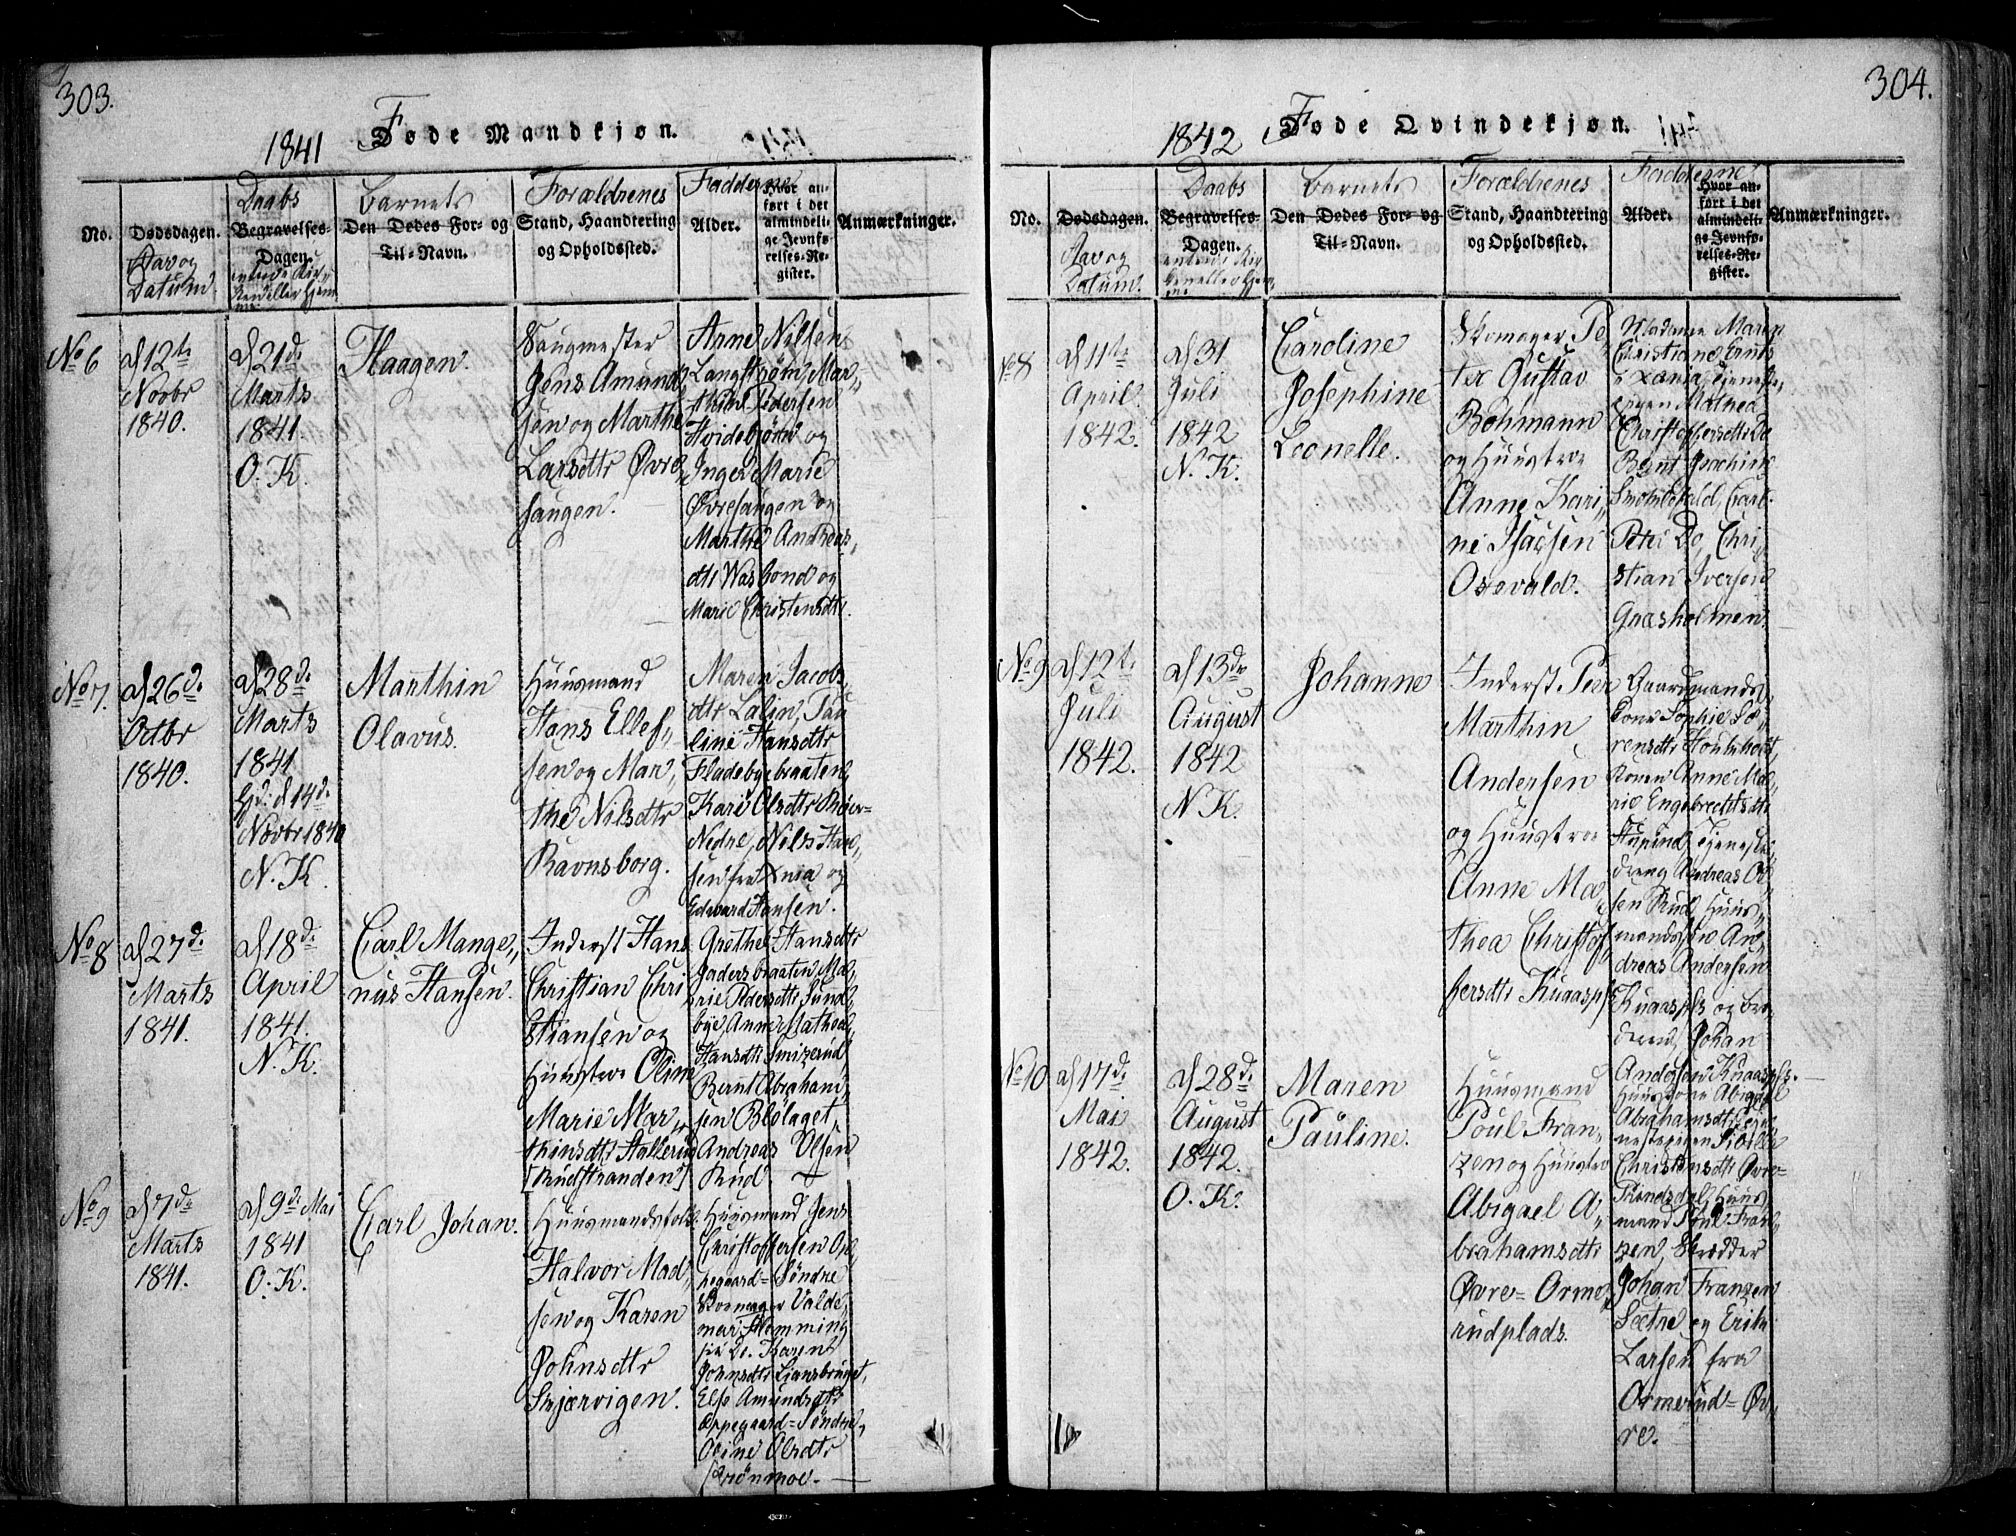 303.
1841 Føde Mandkjøn.
No.
Dødsdagen.
Dav og
Datum
Daabs
Begravelses-
Dagen.
Barnets
Den Dødes For- og
Til-Navn.
Forældrenes
Stand, Haandtering
og Opholdssted.
Fadderne
Alder.
Hvor an-
ført i det
almindeli-
ge Jevnfø-
relses-Re-
gister.
Anmærkninger.
No 6
d 12te
Novbr
1840.
d 21d.
Marts
1841.
O. K.
Haagen.
Saugmester
Jens Amund,,
sen og Marthe
Larsdtr Øvre,,
saugen.
Arne Nilsen
Langstrøm, Mar,,
thine Pedersen
Hvidebjørn og
Inger Marie
Øvresaugen og
Marthe Andreas,,
dtr Wasbond og
Marie Christensdtr.
No 7.
d 26d.
Octbr
1840.
d 28d.
Marts
1841
Hjd. d 14d.
Novbr 1840
N. K.
Marthin
Olavus.
Huusmand
Hans Ellef,,
sen og Mar,,
the Nilsdtr
Ravnsborg.
Maren Jacobs,,
dtr Lalin, Pau
line Hansdtr
Fladebyebraaten,
Kari Olsdtr
Nedre, Nils Han,,
sen fra Xnia og
Edvard Hansen.
No 8
d 27d.
Marts
1841.
d 18d.
April
1841.
N. K.
Carl Mange,,
nus Hansen.
Inderst Hans
Christian Chri
stiansen og
Huustroe Oline
Marie Mar,,
thinsdtr Hallerud
[Rudstranden]
Grethe Hansdtr
braaten, Ma,,
rie Pedersdtr Sund,,
bye, Anne Mathea
Hansdtr Smizerud
Bernt Abraham,,
sen Blølaget,
Andreas Olsen
Rud.
No 9
d 7de
Marts
1841.
d 9d. Mai
1841
O. K.
Carl Johan.
Huusmandsfolk
Halvor Mad,,
sen og Karen
Johnsdtr
Skjærvigen.
Huusmand Jens
Christoffersen Op,,
pegaard=Søndre
Skomager Valde,,
mar Flemming
Karen
Johnsdtr Ljansbruget,
Else Amundsdtr
Oppegaard=Søndre,
Oline Olsdtr
Grønmoe.
304.
1842 Føde Qvindekjøn.
No.
Dødsdagen.
Dav og
Datum.
Daabs
Begravelses-
Dagen.
Barnets
Den Dødes For- og
Til-Navn.
Forældrenes
Stand, Haandtering
og Opholdssted.
Fadderne
Alder.
Hvor an-
ført i det
almindeli-
ge Jevnfø-
relses-Re-
gister.
Anmærkninger.
No 8
d 11te
April.
1842.
d 31
Juli
1842
N. K.
Caroline
Josephine
Leonelle.
Skomager Pe
ter Gustav
Bohmann
og Huustroe
Anne Kari,,
ne Isacsen
Osevald.
Madame Maren
Christiane
Xania, Tjeneste,,
pigen Mathea
Christoffersdtr Do
Bernt Joachim
Carl
Petri Do, Chri
stian Iversen
Gaasholmen.
No 9
d 12te
Juli
1842.
d 13de
August
1842
N. K.
Johanne
Inderst Peer
Marthin
Andersen
og Huustroe
Anne Ma,,
thea Christof,,
fersdtr Kuaaspls.
Gaardmands,,
Kone Sophie So,,
rensdtr
Konen Anne Ma,,
rie Engebrechtsdtr
Tjeneste,,
dreng Andreas Ol,,
sen Rud, Huus,,
mands An,,
dreas Andersen
Kuaaspls og Bro,,
deren, Johan
Andersen Kuaaspls.
No 10
d 17d.
Mai
1842.
d 28d.
August
1842.
O. K.
Maren
Pauline.
Huusmand
Poul Fran,,
zen og Huustro
Abigael A,,
brahamsdtr
Øvre=Orme,,
rudplads.
Huustroe Abigael
Abrahamsdtr, Tje,,
nestepigen
Christensdtr Øvre=
Huus,,
mand Poul Fran,,
zen, Skrædder
Johan Franzen
Sætre og Erik
Larsen fra
Ormerud=Øv,,
re.